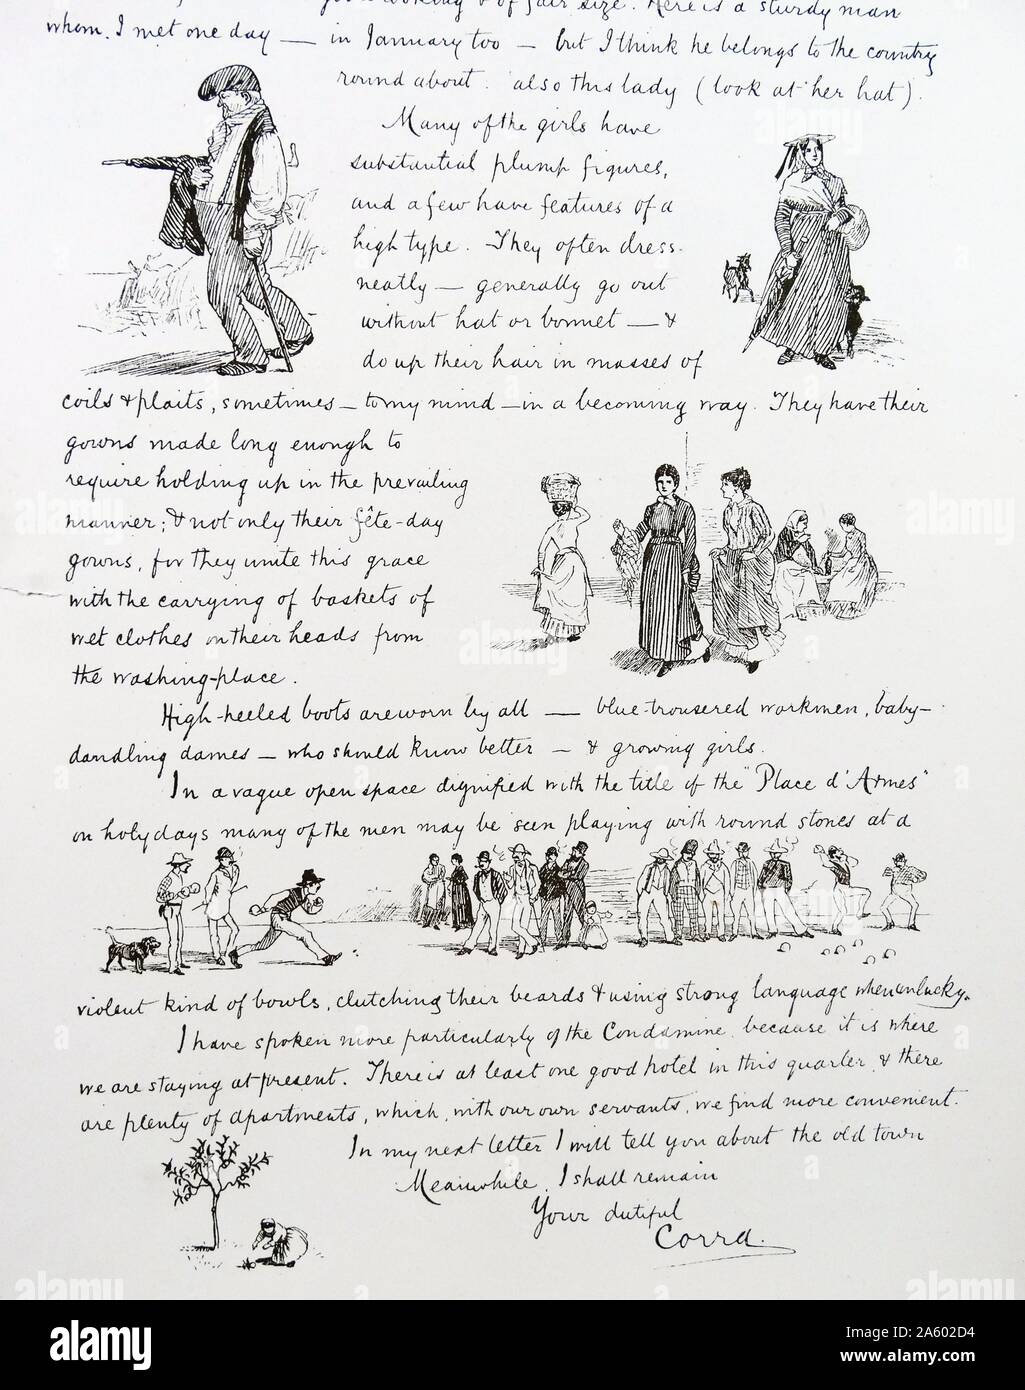 looking & of fair size. Here is a sturdy man
whom I met one day — in January too — but I think he belongs to the country
round about. also this lady (look at her hat).
Many of the girls have
substantial plump figures,
and a few have features of a
high type. They often dress
neatly — generally go out
without hat or bonnet — &
do up their hair in masses of
coils & plaits, sometimes — to my mind — in a becoming way. They have their
gowns made long enough to
require holding up in the prevailing
manner; & not only their fête-day
gowns, for they unite this grace
with the carrying of baskets of
wet clothes on their heads from
the washing-place.
High-heeled boots are worn by all — blue-trousered workmen, baby-
dandling dames — who should know better — & growing girls.
In a vague open space dignified with the title of the "Place d'Armes"
on holydays many of the men may be seen playing with round stones at a
violent kind of bowls, clutching their beards & using strong language when unlucky.
I have spoken more particularly of the Condamine, because it is where
we are staying at present. There is at least one good hotel in this quarter, & there
are plenty of apartments, which, with our own servants, we find more convenient.
In my next letter I will tell you about the old town
Meanwhile, I shall remain
Your dutiful
Corra.
alamy
Image ID: 2A602D4
www.alamy.com